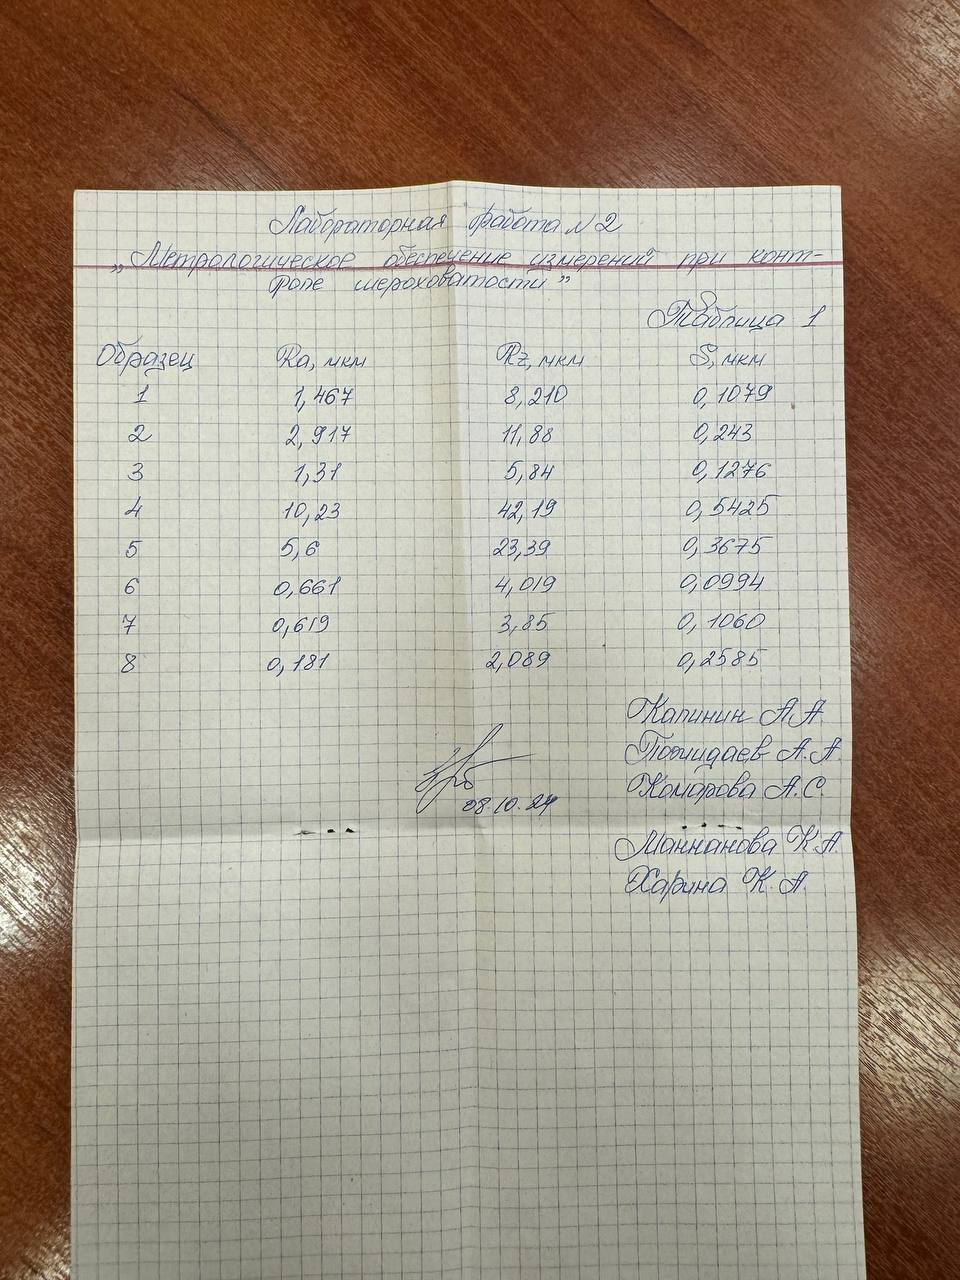 Лабораторная работа №2
„Метрологическое обеспечение измерений при конт-
роле шероховатости”
Таблица 1
Образец Ra, мкм Rz, мкм S, мкм
1 1,467 8,210 0,1079
2 2,917 11,88 0,243
3 1,31 5,84 0,1276
4 10,23 42,19 0,5425
5 5,6 23,39 0,3675
6 0,661 4,019 0,0994
7 0,619 3,85 0,1060
8 0,181 2,089 0,2585
Калинин А.А.
Пожидаев А.А.
Комарова А.С.
08.10.24
Маннанова К.А.
Харина К.А.